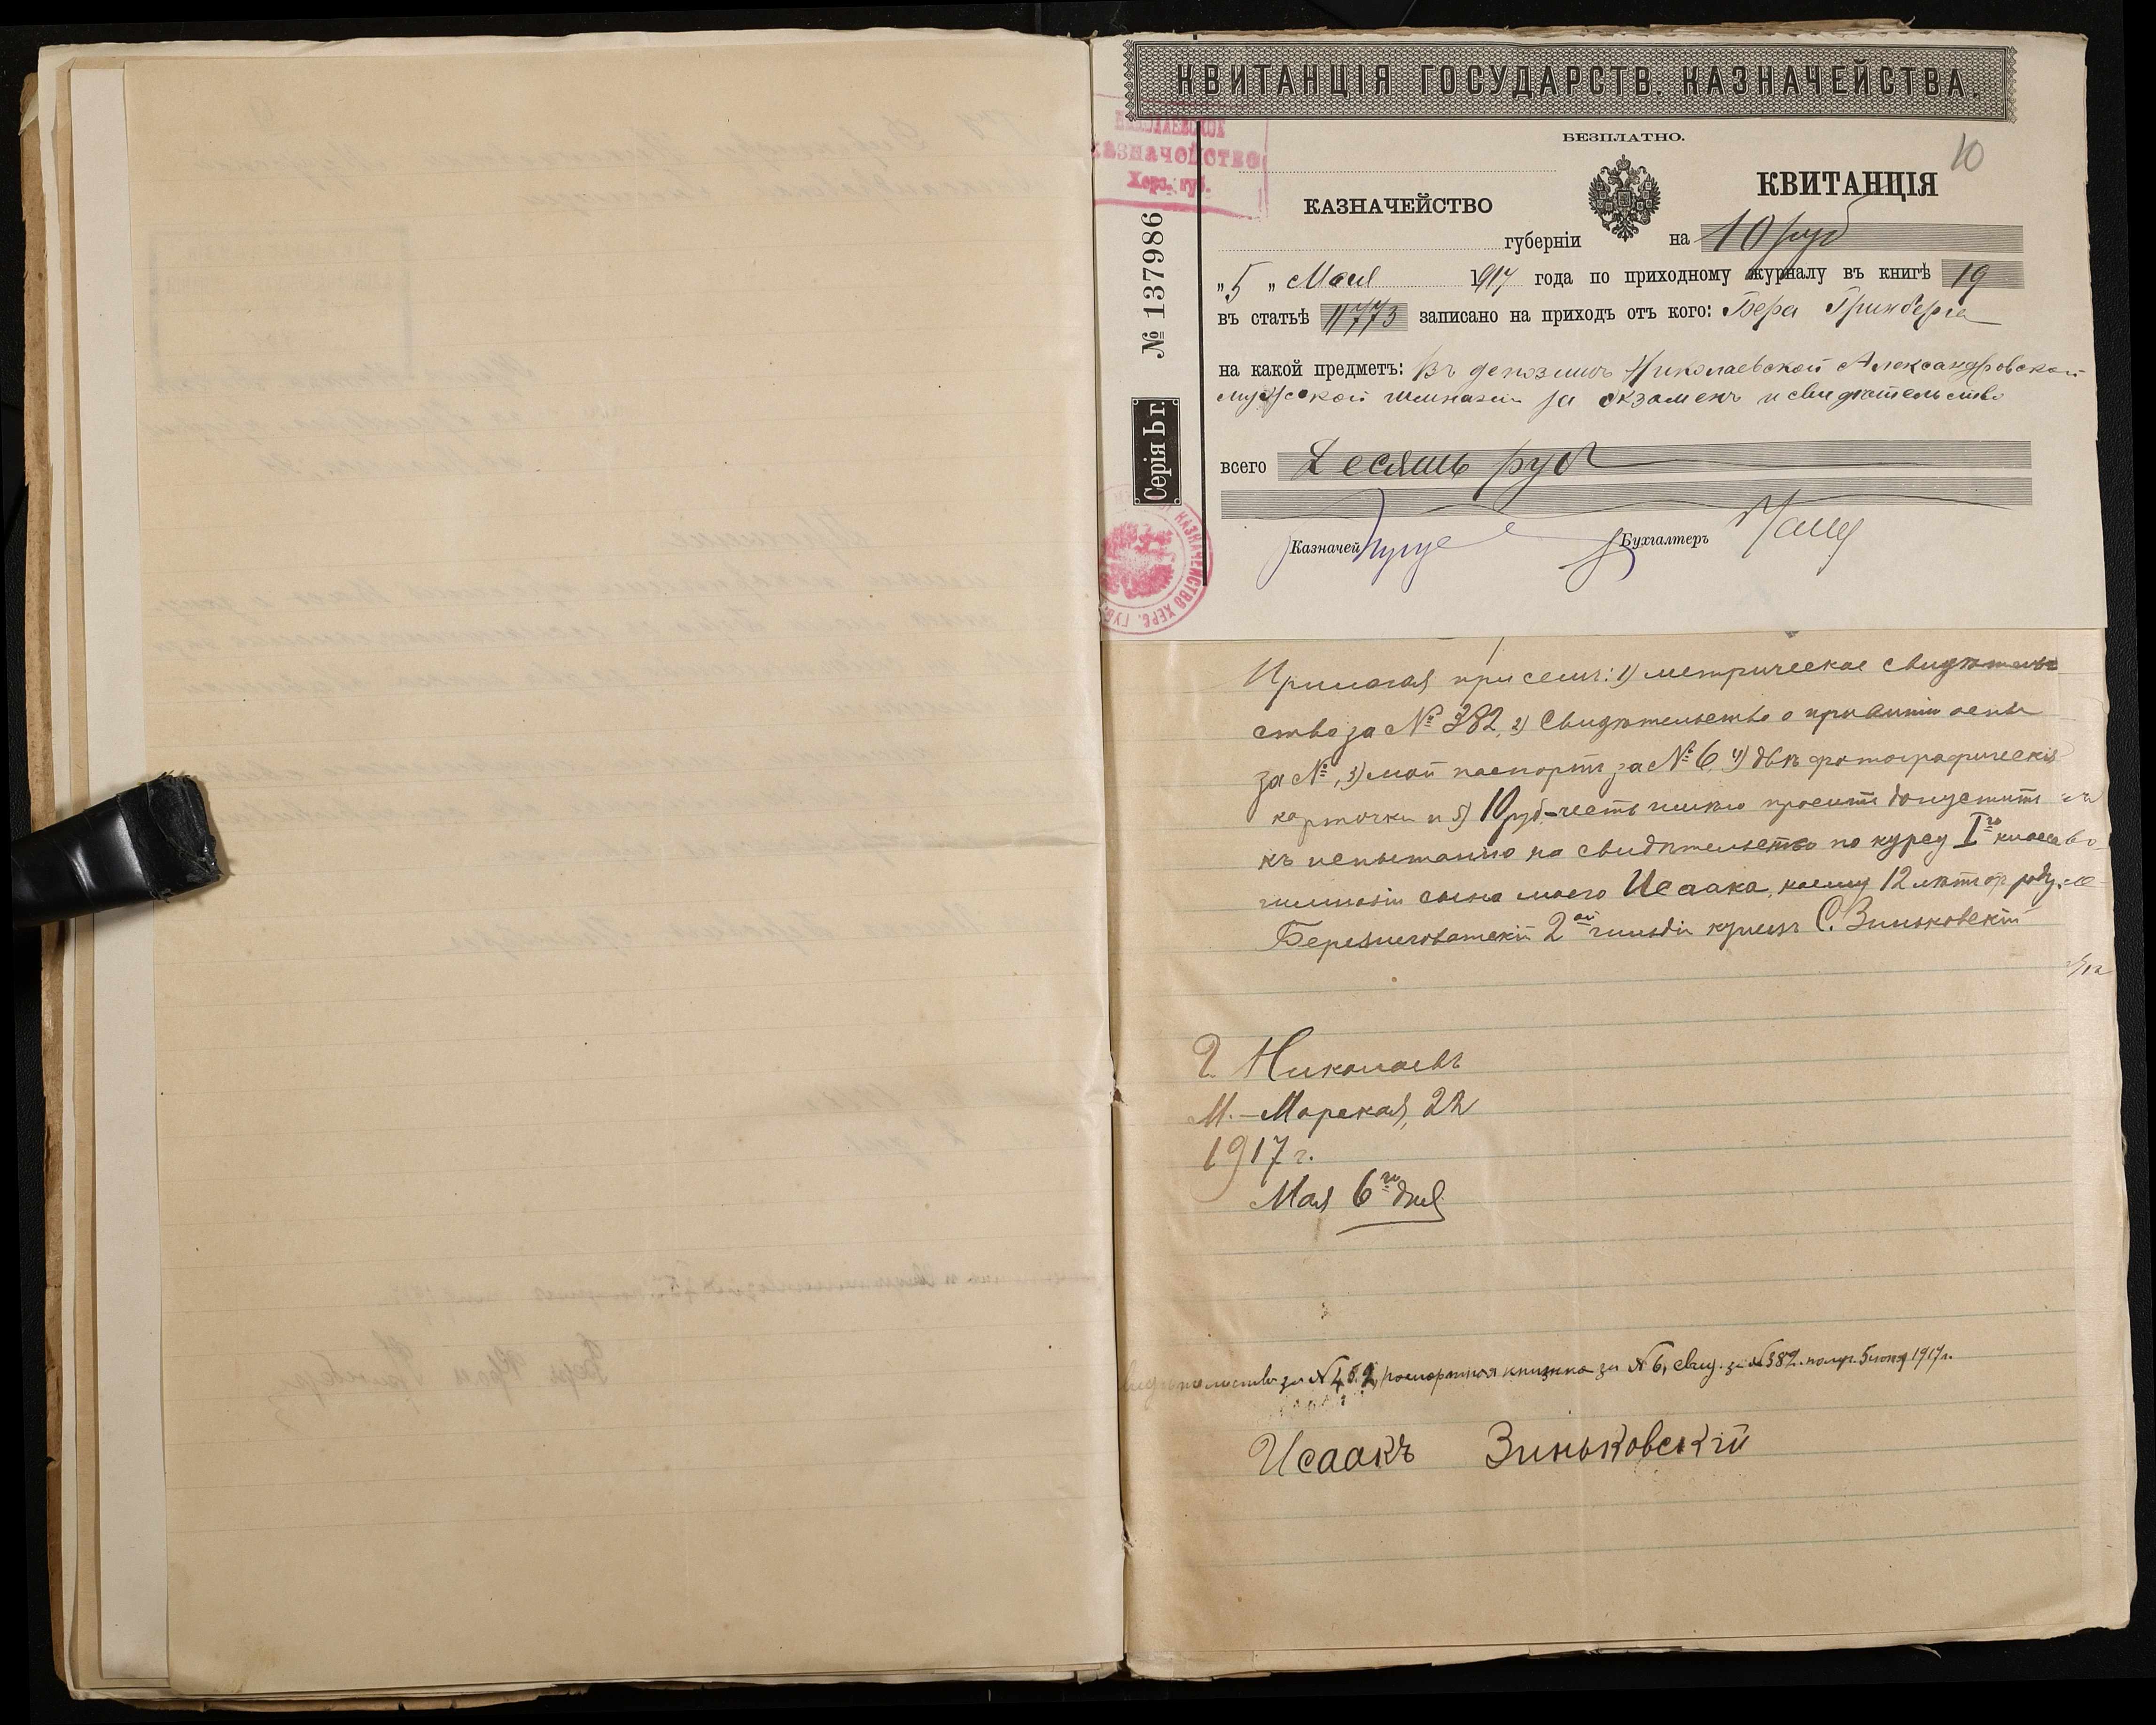 КВИТАНЦІЯ ГОСУДАРСТВ. КАЗНАЧЕЙСТВА.
БЕЗПЛАТНО.
10
НИКОЛАЕВСКОЕ
КАЗНАЧЕЙСТВО
Херс. губ.
КАЗНАЧЕЙСТВО
КВИТАНЦІЯ
губерніи на 10 руб
"5" Мая 1917 года по приходному журналу въ книгѣ 19
въ статьѣ 11773 записано на приходъ отъ кого: Бера Гринберга
на какой предметъ: Въ депозитъ Николаевской Александровской
мужской гимназіи за экзаменъ и свидѣтельство
всего Десять руб
Казначей
Бухгалтеръ
№ 137986
Серія Ьг.
КАЗНАЧЕЙСТВО ХЕРС. ГУБ.
Прилагая при семъ: 1) метрическое свидѣтель
ство за № 382, 2) Свидѣтельство о привитіи оспы
за №, 3) мой паспортъ за № 6, 4) двѣ фотографическія
карточки и 5) 10 руб.-честь имѣю просить допустить
къ испытанію на свидѣтельство по курсу Iго класса
гимназіи сына моего Исаака, коему 12 лѣтъ отъ
Березнеговатскій 2ой гильдіи купецъ С. Зиньковскій
Г. Николаевъ
М.-Морская, 22
1917 г.
Мая 6го дня
за № 452, паспортная книжка за № 6, свид. за № 382. получ. 5 іюня 1917 г.
Исаакъ Зиньковскій